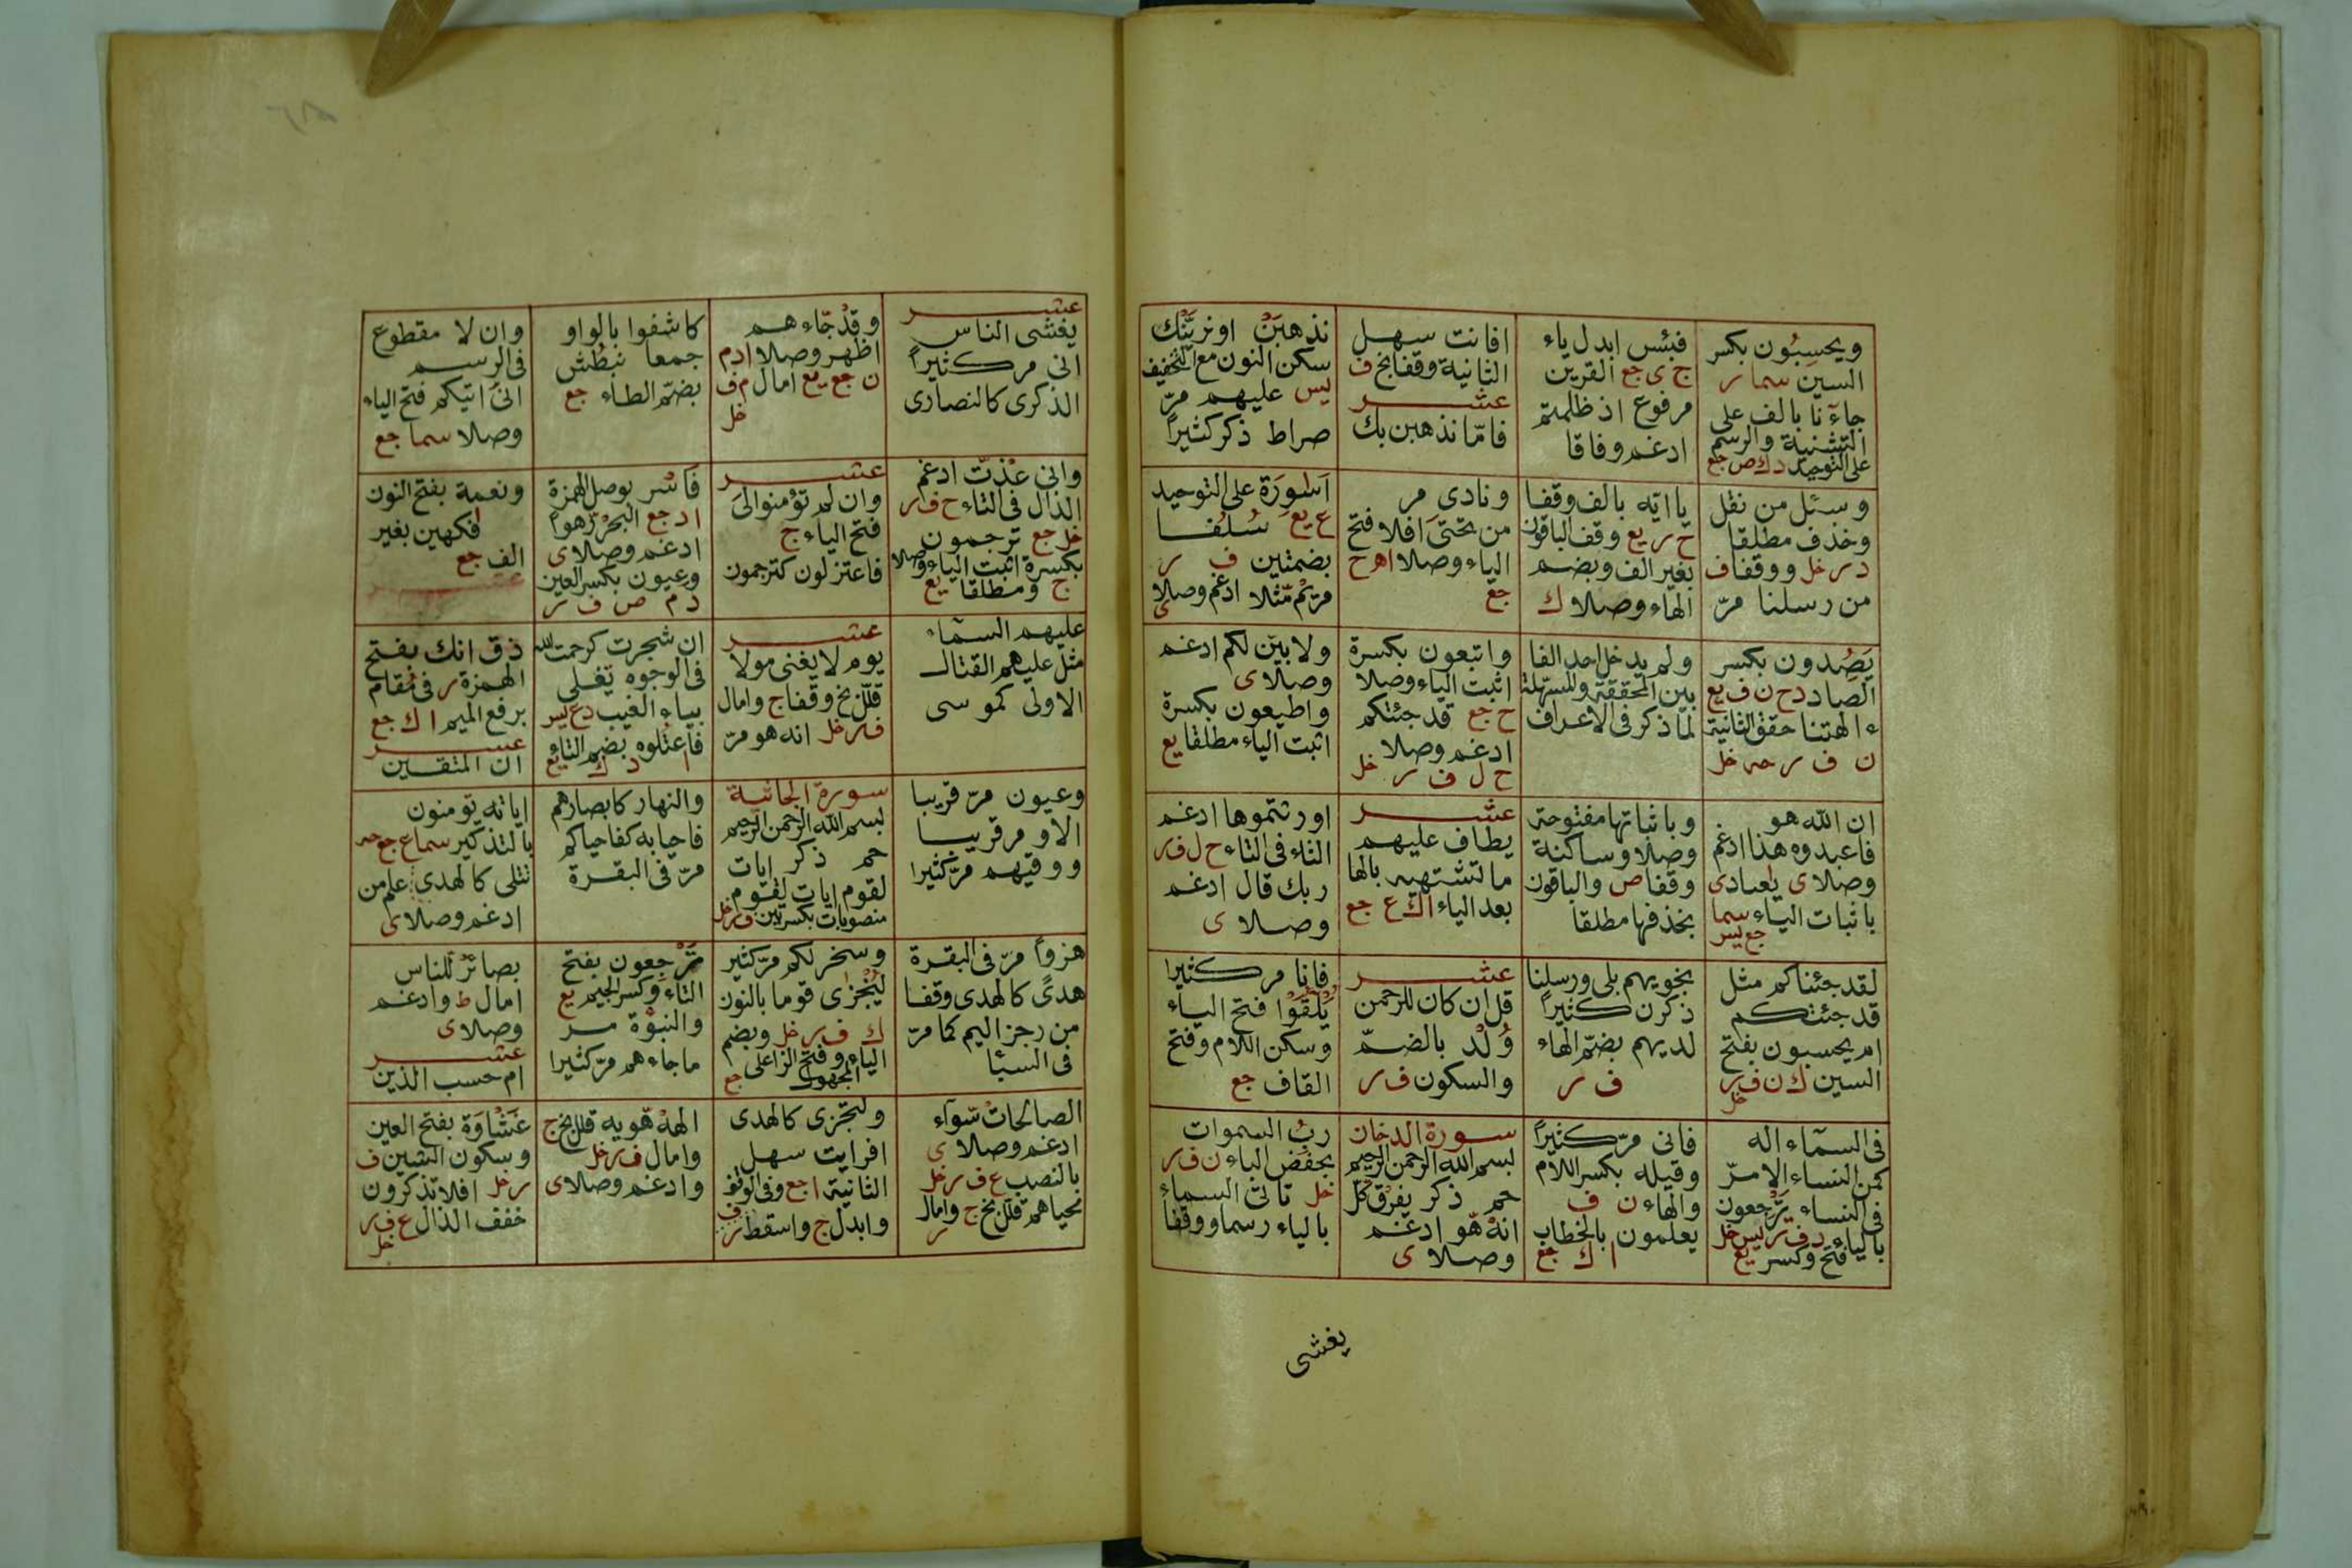 ويحسِبُون بكسر
السين سما ر
جاءٓنا بالف على
التثنية والرسم
على التوحيد د ك ص جع
فبئس ابدل ياء
ج ى جع القرين
مرفوع اذ ظلمتم
ادغم وفاقا
افانت سهل
الثانية وقفا بخ ف
عشر
فامّا نذهبن بك
نذهبَنْ او نريَنْك
سكن النون مع التخفيف
ليس عليهم مرّ
صراط ذكر كثيراً
وسئل من نقل
وحذف مطلقا
د ر خل ووقفا ف
من رسلنا مرّ
يا ايّه بالف وقفا
ح ر يع وقف الباقون
بغير الف وبضم
الهاء وصلا ك
ونادى مر
من تحتىَ افلا فتح
الياء وصلا ا ه ح
جع
اَسْوِرَة على التوحيد
ع يع سُلُفا
بضمتين ف ر
مريَمْ مّثلا ادغم وصلا
ى
يَصِدون بكسر
الصاد د ح ن ف يع
ءالهتنا حقق الثانية
ن ف ر حه خل
ولم يدخل احد الفا
بين المحققة والمسهلة
لما ذكر فى الاعراف
واتبعون بكسرة
اثبت الياء وصلا
ح جع قد جئتكم
ادغم وصلا
ح ل ف ر خل
ولابيّن لكم ادغم
وصلا ى
واطيعون بكسرة
اثبت الياء مطلقا يع
ان الله هو
فاعبدوه هذا ادغم
وصلا ى يعبادى
باثبات الياء سما
جع يس
وباثباتها مفتوحة
وصلا وساكنة
وقفا ص والباقون
بحذفها مطلقا
عشر
يطاف عليهم
ما تشتهيه بالها
بعد الياء ا ك ع جع
اورثتموها ادغم
الثاء فى التاء ح ل ف ر
ربك قال ادغم
وصلا ى
لقد جئناكم مثل
قد جئتكم
ام يحسبون بفتح
السين ك ن ف ر
خل
بخويهم بلى ورسلنا
ذكرن كثيراً
لديهم بضم الهاء
ف ر
عشر
قل ان كان للرحمن
وُلْد بالضمّ
والسكون ف ر
فانا مر كثيرا
يَلْقَوْا فتح الياء
وسكن اللام وفتح
القاف جع
فى السمآء اله
كمن النساء الا مرّ
فى النساء يَرْجعون
بالياء د ف ر يس خل
فتح وكسر يع
فانى مرّ كثيراً
وقيله بكسر اللام
والهاء ن ف
يعلمون بالخطاب
ا ك جع
سورة الدخان
بسم الله الرحمن الرحيم
حم ذكر يفرق كل
انهْ هّو ادغم
وصلا ى
ربِّ السموات
بخفض الباء ن ف ر
خل تاتى السماء
بالياء رسما ووقفا
يغشى
عشر
يغشى الناس
انى مر كثيراً
الذكرى كالنصارى
وقدْ جّاءهم
اظهر وصلا ا د م
ن جع يع امال م ف
خل
كاشفوا بالواو
جمعا نبطُش
بضمّ الطاء جع
وان لا مقطوع
فى الرسم
انىَ اتيكم فتح الياء
وصلا سما جع
وانى عُذتّ ادغم
الذال فى التاء ح ف ر
خل جع ترجمون
بكسرة اثبت الياء وصلا
ج ومطلقا يع
عشر
وان لم تؤمنوا لىَ
فتح الياء ج
فاعتزلون كترجمون
فَاسْر بوصل الهمزة
ا د جع البحرْ رّهواً
ادغم وصلا ى
وعيون بكسر العين
د م ص ف ر
ونعمة بفتح النون
فكهين بغير
الف جع
عليهم السمآء
مثل عليهم القتال
الاولى كموسى
عشر
يوم لا يغنى مولا
قلل بخ وقفا ج وامال
ف ر خل انه هو مرّ
ان شجرت كرحمت الله
فى الوجوه يَغْلى
بياء الغيب د ع يس
فاعتُلوه بضم التاء
ا د ك يع
ذق انك بفتح
الهمزة ر فى مُقام
برفع الميم ا ك جع
عشر
ان المتقين
وعيون مرّ قريبا
الا و مر قريبا
ووقيهم مرّ كثيرا
سورة الجاثية
بسم الله الرحمن الرحيم
حم ذكر ايات
لقوم ايات لقوم
منصوبات بكسرتين ف ر خل
والنهار كابصارهم
فاحيا به كفاحياكم
مرّ فى البقرة
اياته تؤمنون
بالتذكير سما ع جع حه
تتلى كالهدى علم من
ادغم وصلا ى
هزواً مرّ فى البقرة
هدًى كالهدى وقفا
من رجز اليم كما مرّ
فى السبأ
وسخر لكم مرّ كثير
لِنَجْزى قوما بالنون
ك ف ر خل وبضم
الياء وفتح الزا على
المجهول جع
تَرْجِعون بفتح
التاء وكسر الجيم يع
والنبوّة مر
ما جاءهم مرّ كثيرا
بصائرْ لّلناس
امال ط وادغم
وصلا ى
عشر
ام حسب الذين
الصالحاتْ سّوآء
ادغم وصلا ى
بالنصب ع ف ر خل
محياهم قلل بخ ج وامال
ر
ولتجزى كالهدى
افرايت سهل
الثانية ا جع وفى الوقف
وابدل ج واسقط ر
ف
الههْ هّويه قلل بخ ج
وامال ف ر خل
وادغم وصلا ى
غَشْاوَة بفتح الغين
وسكون الشين ف
ر خل افلا تذكرون
خفف الذال ع ف ر
خل